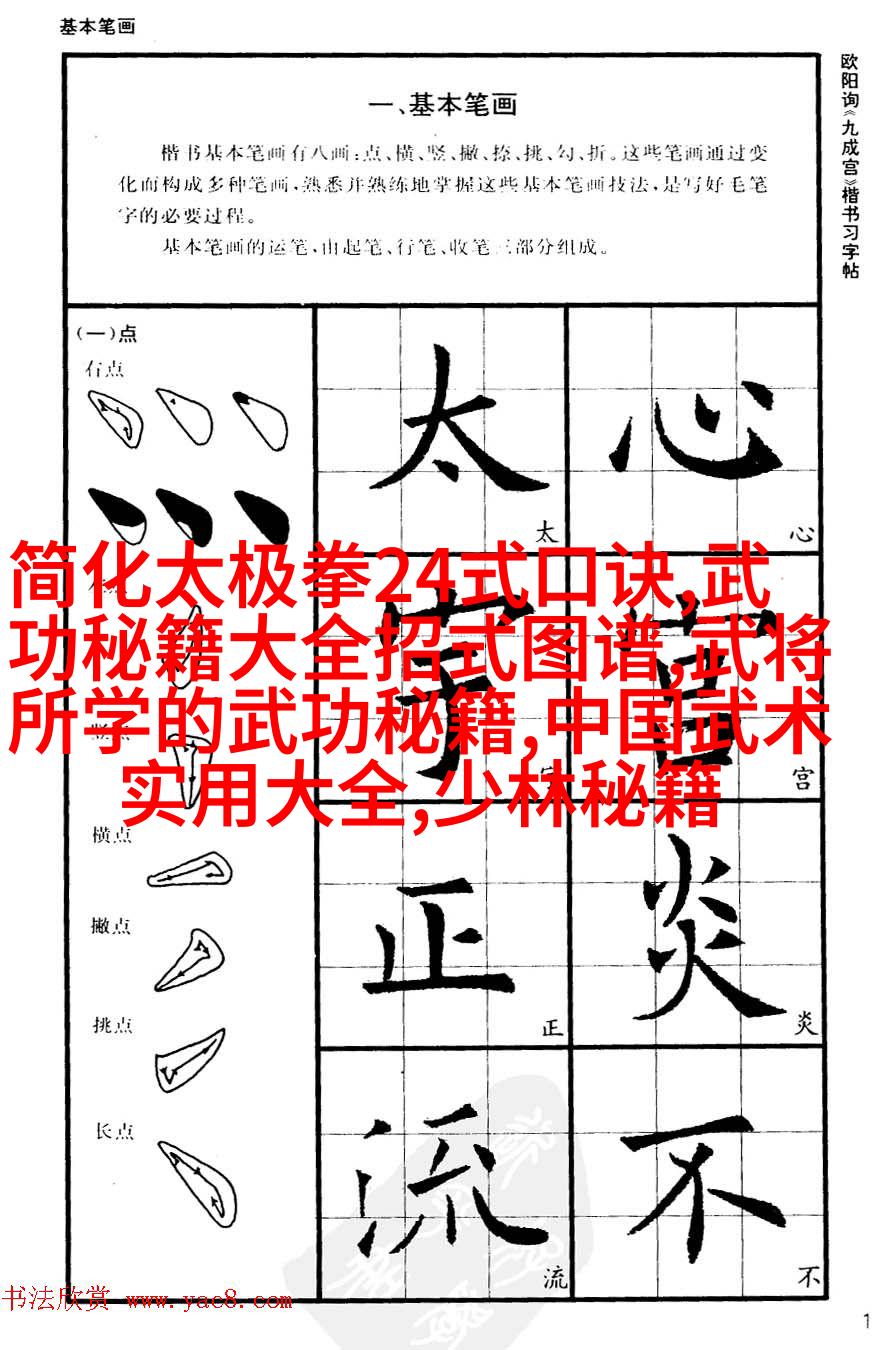 基本笔画
欧阳询《九成宫》楷书习字帖
一、基本笔画
楷书基本笔画有八画：点、横、竖、撇、捺、挑、勾、折。这些笔画通过变
化而构成多种笔画，熟悉并熟练地掌握这些基本笔画技法，是写好毛笔
字的必要过程。
基本笔画的运笔，由起笔、行笔、收笔三部分组成。
(一)点
右点
太
太
心
心
简化太极拳24式口诀,武
功秘籍大全招式图谱,武将
所学的武功秘籍,中国武术
实用大全,少林秘籍
宫
横点
撇点
挑点
长点
正
正
炎
炎
流
流
不
不
书法欣赏 www.yac8.com
1